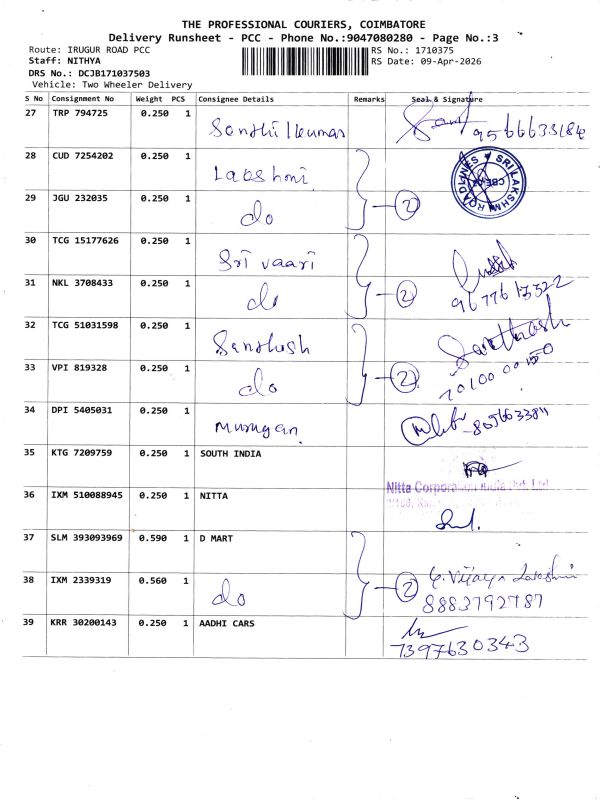 THE PROFESSIONAL COURIERS, COIMBATORE
Delivery Runsheet - PCC - Phone No.:9047080280 - Page No.:3
Route: IRUGUR ROAD PCC
RS No.: 1710375
Staff: NITHYA
RS Date: 09-Apr-2026
DRS No.: DCJB171037503
Vehicle: Two Wheeler Delivery
S No Consignment No Weight PCS Consignee Details Remarks Seal & Signature
27 TRP 794725 0.250 1 Senthilkumar 9566633184
28 CUD 7254202 0.250 1 Lakshmi SRI LAKSHMI ROADLINES
29 JGU 232035 0.250 1 do 2
30 TCG 15177626 0.250 1 Sri vaari
31 NKL 3708433 0.250 1 do 2 9677613322
32 TCG 51031598 0.250 1 Santhosh Santhosh
33 VPI 819328 0.250 1 do 2
34 DPI 5405031 0.250 1 murugan
35 KTG 7209759 0.250 1 SOUTH INDIA
36 IXM 510088945 0.250 1 NITTA Nitta Corporation India Pvt. Ltd
37 SLM 393093969 0.590 1 D MART
38 IXM 2339319 0.560 1 do 2 G. Vijaya Lakshmi
8883792787
39 KRR 30200143 0.250 1 AADHI CARS
7397630343